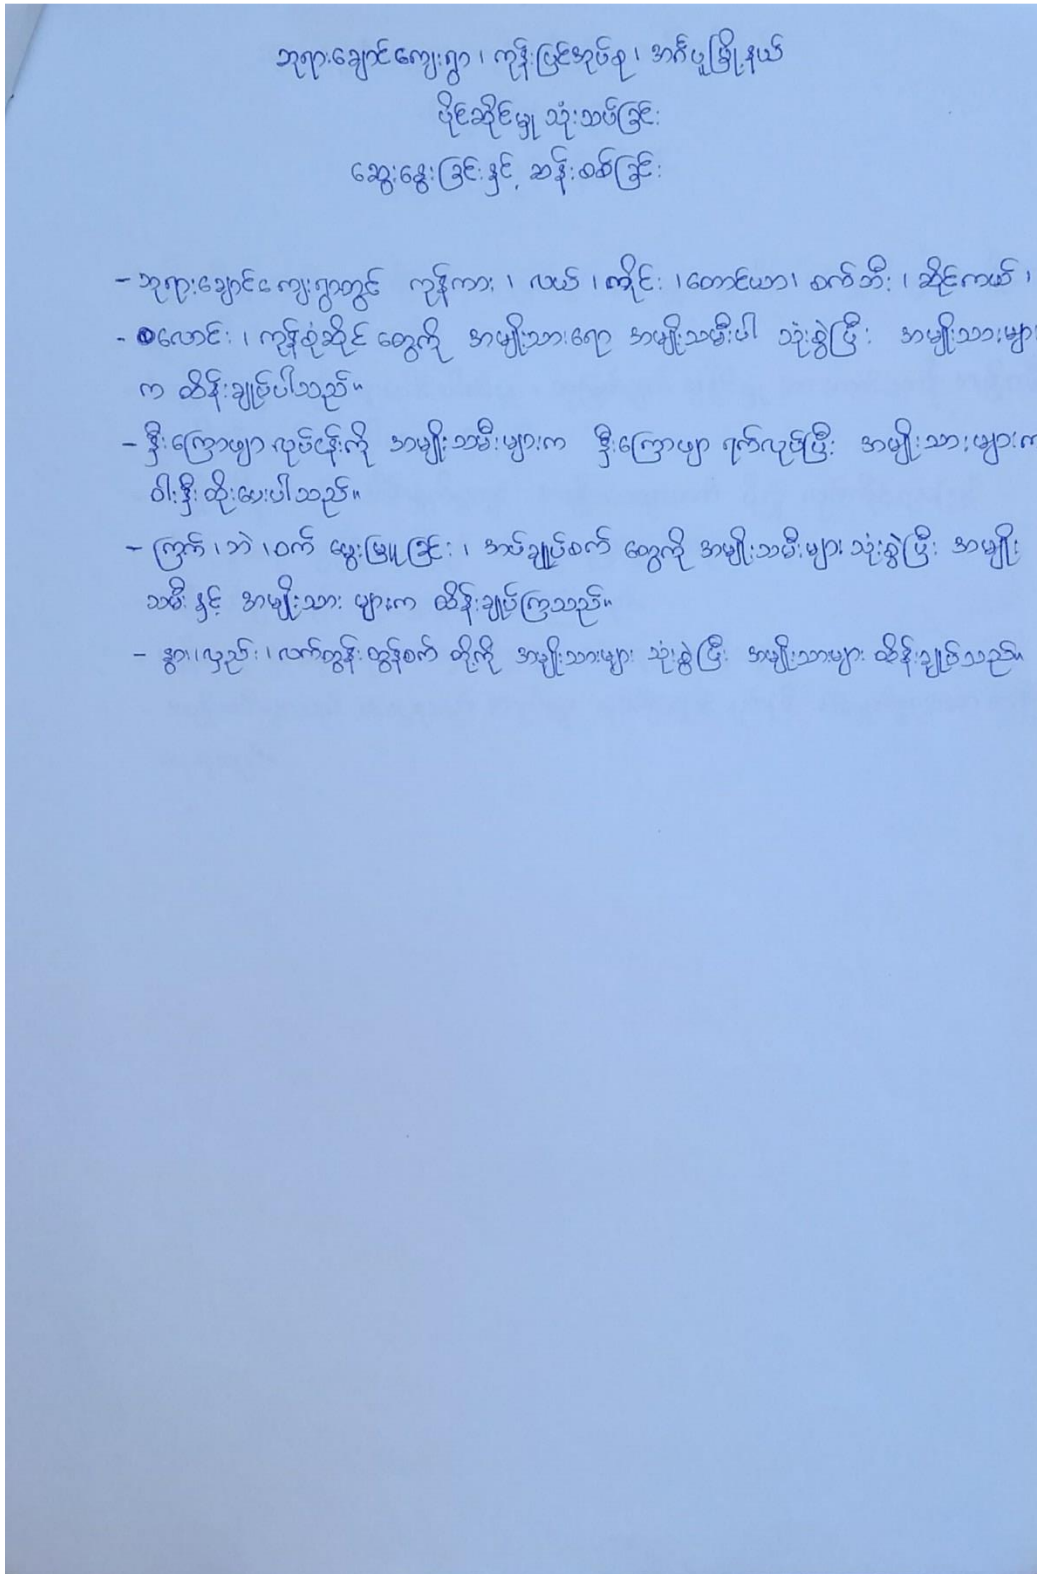 ဘုရားချောင်ကျေးရွာ ၊ ကုန်းပြင်အုပ်စု ၊ အင်္ဂပူမြို့နယ်
ပိုင်ဆိုင်မှု သုံးသပ်ခြင်း
ဆွေးနွေးခြင်းနှင့် ဆန်းစစ်ခြင်း
- ဘုရားချောင်ကျေးရွာတွင် ကုန်ကား ၊ လယ် ၊ ကိုင်း ၊ တောင်ယာ ၊ စက်ဘီး ၊ ဆိုင်ကယ် ၊
- လောင်း ၊ ကုန်စုံဆိုင် တွေကို အမျိုးသားရော အမျိုးသမီးပါ သုံးစွဲပြီး အမျိုးသားများ
က ထိန်းချုပ်ပါသည်။
- နှီးကြောဖျာ လုပ်ငန်းကို အမျိုးသမီးများက နှီးကြောဖျာ ရက်လုပ်ပြီး အမျိုးသားများက
ဝါးနှီး ထိုးပေးပါသည်။
- ကြက် ၊ ဘဲ ၊ ဝက် မွေးမြူခြင်း ၊ အပ်ချုပ်စက် တွေကို အမျိုးသမီးများ သုံးစွဲပြီး အမျိုး
သမီးနှင့် အမျိုးသား များက ထိန်းချုပ်ကြသည်။
- နွား ၊ လှည်း ၊ လက်တွန်းထွန်စက် တို့ကို အမျိုးသားများ သုံးစွဲပြီး အမျိုးသားများ ထိန်းချုပ်သည်။